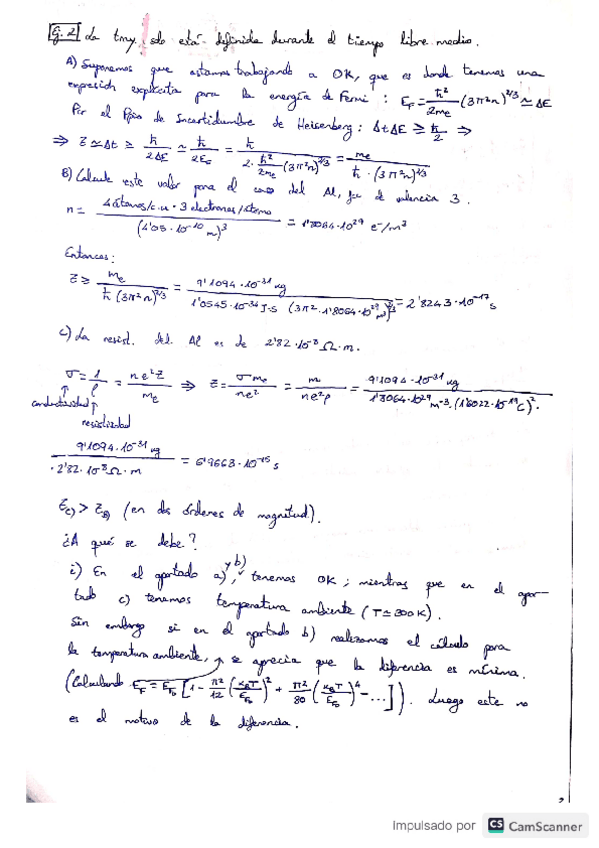 G.2 La tray. solo está definida durante el tiempo libre medio.
A) Suponemos que estamos trabajando a 0K, que es donde tenemos una
expresión explícita para la energía de Fermi : E_F = ħ²/2me (3π²n)^2/3 ≃ ΔE
Por el Ppio de Incertidumbre de Heisenberg : Δt ΔE ≥ ħ/2 ⇒
⇒ τ ≃ Δt ≥ ħ/2ΔE ≃ ħ/2E_F = ħ / (2 · ħ²/2me (3π²n)^2/3) = me / (ħ · (3π²n)^2/3)
B) Calcule este valor para el caso del Al, de valencia 3.
n = 4 átomos/c.u · 3 electrones/átomo / (4'05 · 10^-10 m)³ = 1'8064 · 10^29 e⁻/m³
Entonces:
τ ≥ me / (ħ (3π²n)^2/3) = 9'1094 · 10^-31 kg / (1'0545 · 10^-34 J·s (3π² · 1'8064 · 10^29 m⁻³)^2/3) = 2'8243 · 10^-17 s
C) La resist. del Al es de 2'82 · 10^-8 Ω · m.
σ = 1/ρ = ne²τ/me ⇒ τ = σ me/ne² = m/ne²ρ = 9'1094 · 10^-31 kg / 1'8064 · 10^29 m^-3 · (1'6022 · 10^-19 C)² ·
conductividad
resistividad
9'1094 · 10^-31 kg / · 2'82 · 10^-8 Ω · m = 6'9663 · 10^-15 s
τ_c) > τ_b) (en dos órdenes de magnitud).
¿A qué se debe?
i) En el apartado a) y b), tenemos 0K ; mientras que en el apar-
tado c) tenemos temperatura ambiente (T ≃ 300K).
Sin embargo si en el apartado b) realizamos el cálculo para
la temperatura ambiente, se aprecia que la diferencia es mínima.
(Calculando E_F = E_F0 [1 - π²/12 (K_B T/E_F0)² + π²/80 (K_B T/E_F0)⁴ - ...]). Luego este no
es el motivo de la diferencia.
Impulsado por CS CamScanner